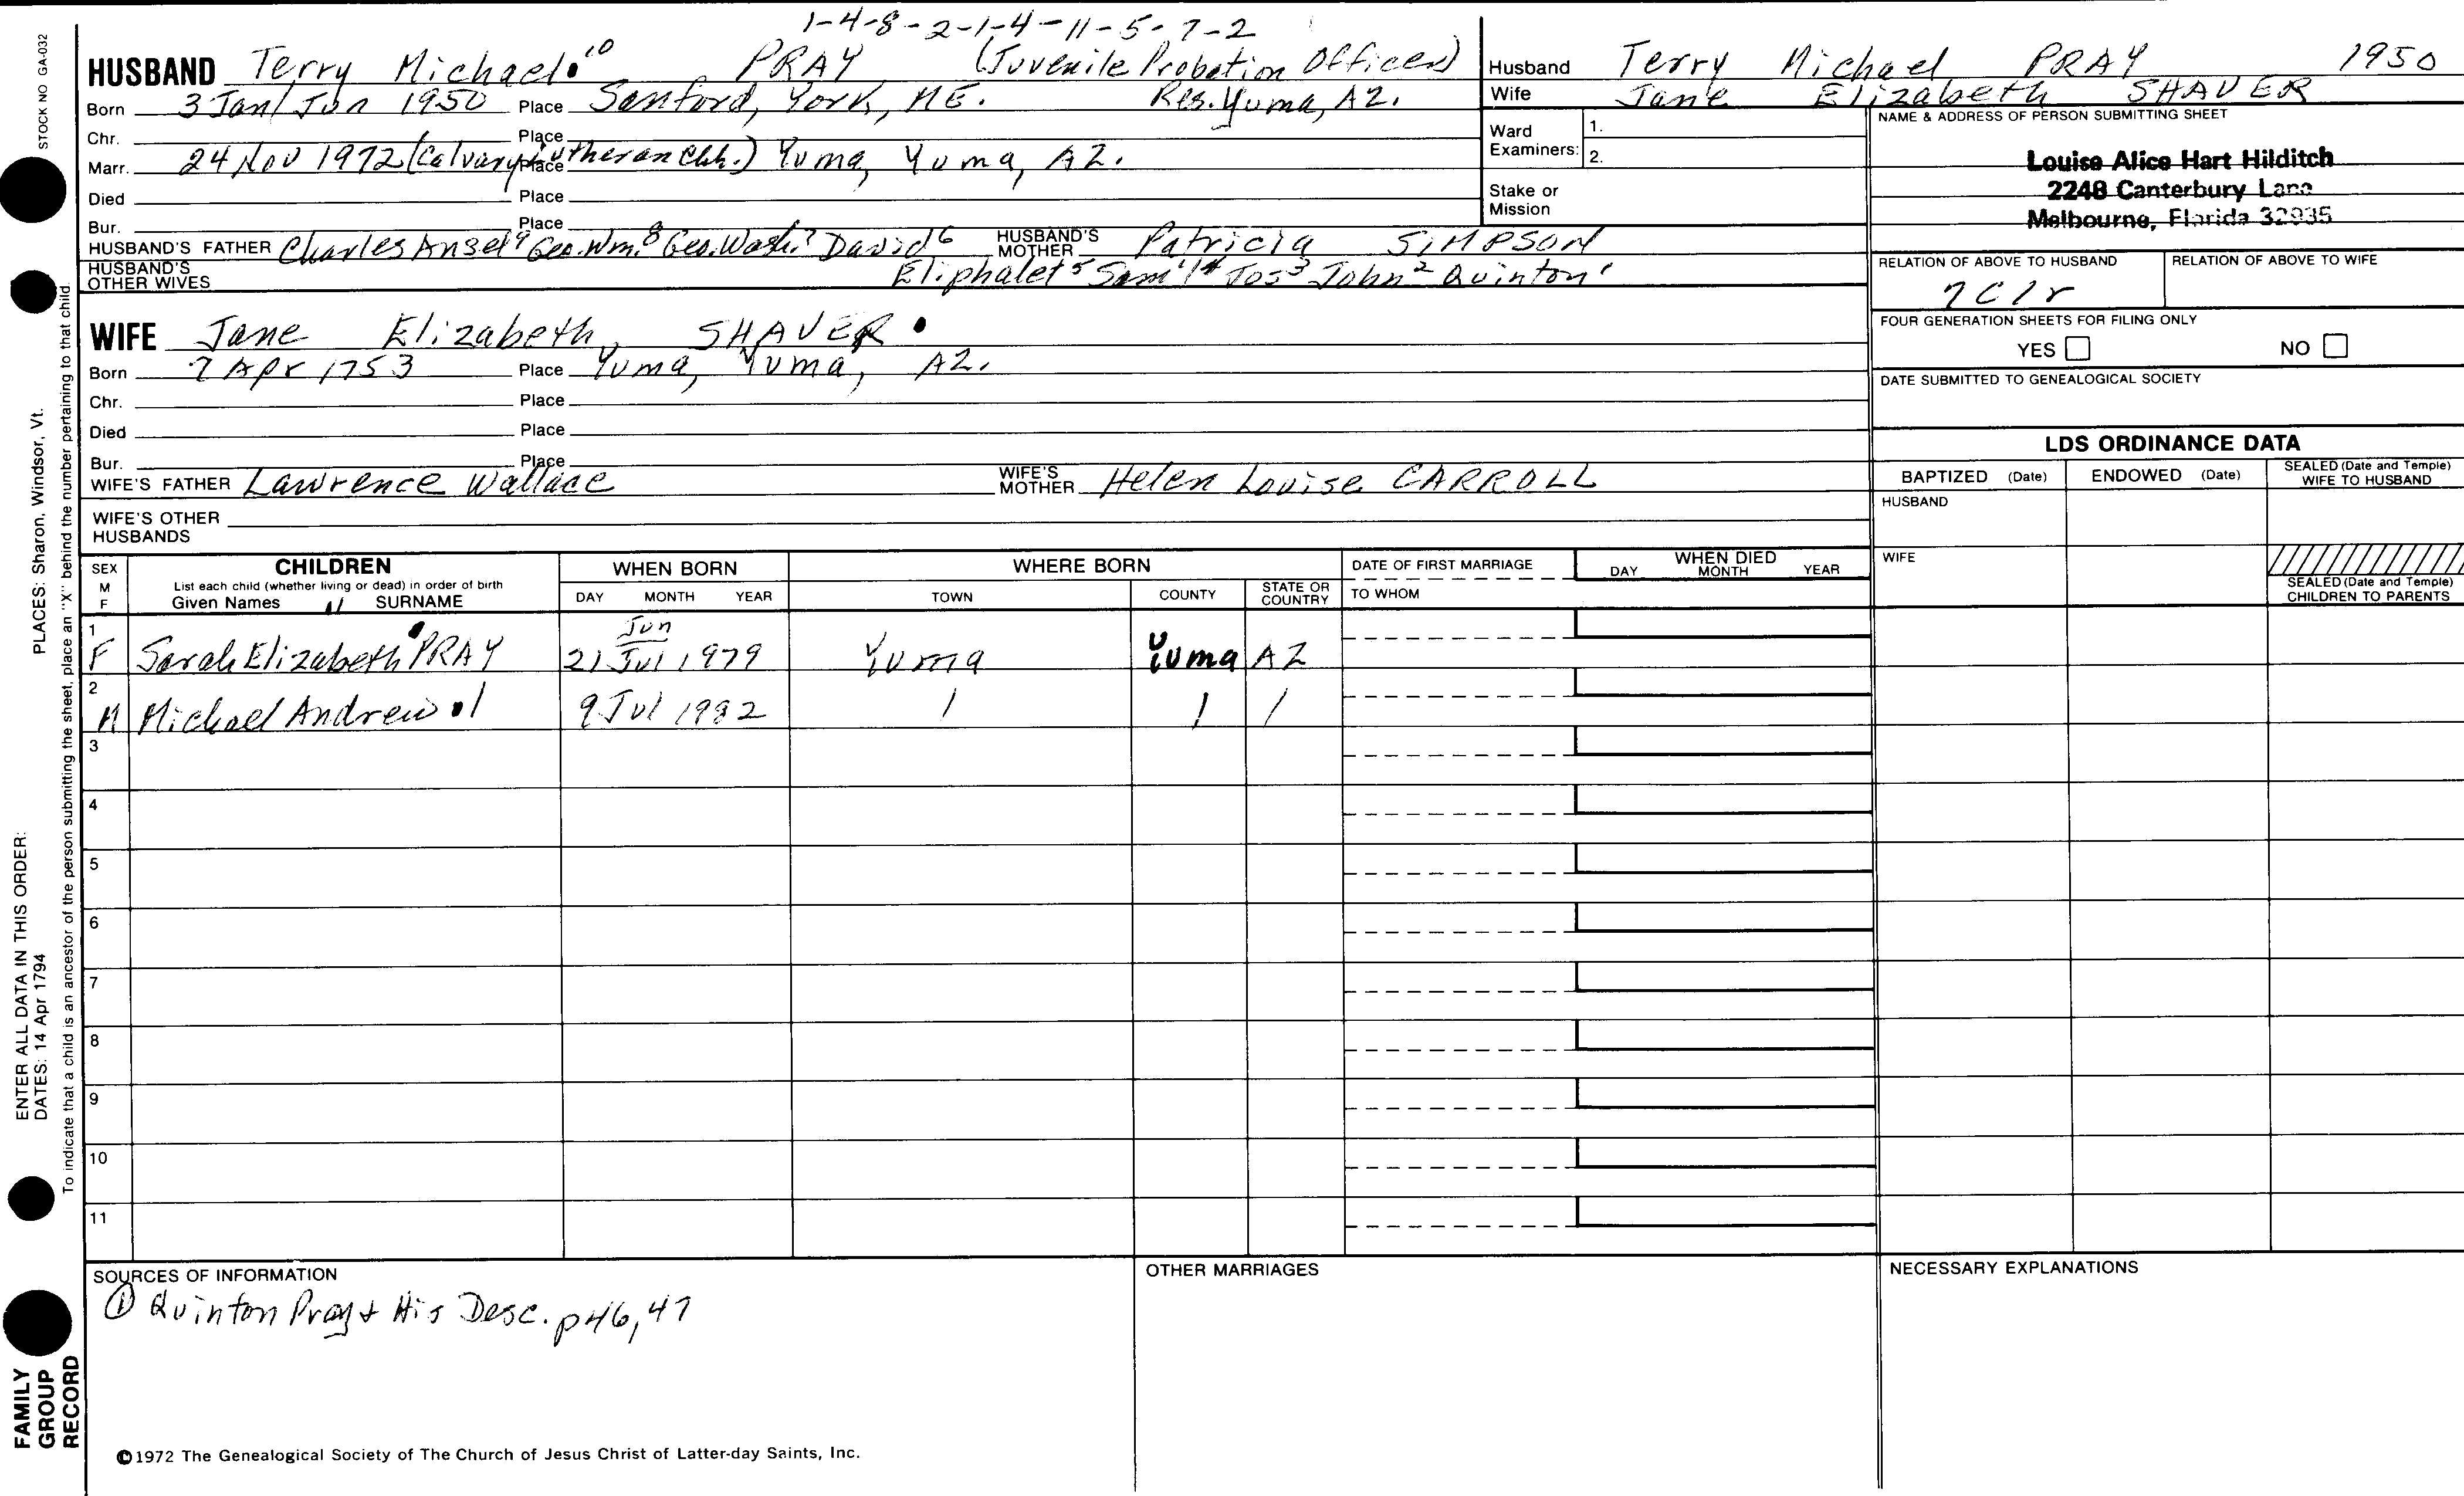 1-4-8-2-1-4-11-5-7-2
HUSBAND Terry Michael 10 PRAY (Juvenile Probation Officer)
Born 3 Jan/Jun 1950 Place Sanford, York, ME. Res. Yuma, AZ.
Chr. Place
Marr. 24 Nov 1972 (Calvary Lutheran Chh.) Place Yuma, Yuma, AZ.
Died Place
Bur. Place
HUSBAND'S FATHER Charles Ansel 9 Geo. Wm. 8 Geo. Wash. 7 David 6 HUSBAND'S MOTHER Patricia SIMPSON
HUSBAND'S OTHER WIVES Eliphalet 5 Sam'l 4 Jos 3 John 2 Quinton 1
WIFE Jane Elizabeth SHAVER
Born 7 Apr 1753 Place Yuma, Yuma, AZ.
Chr. Place
Died Place
Bur. Place
WIFE'S FATHER Lawrence Wallace WIFE'S MOTHER Helen Louise CARROLL
WIFE'S OTHER HUSBANDS
Husband Terry Michael PRAY 1950
Wife Jane Elizabeth SHAVER
Ward Examiners: 1.
2.
Stake or Mission
NAME & ADDRESS OF PERSON SUBMITTING SHEET
Louise Alice Hart Hilditch
2248 Canterbury Lane
Melbourne, Florida 32935
RELATION OF ABOVE TO HUSBAND RELATION OF ABOVE TO WIFE
7C1r
FOUR GENERATION SHEETS FOR FILING ONLY
YES NO
DATE SUBMITTED TO GENEALOGICAL SOCIETY
LDS ORDINANCE DATA
BAPTIZED (Date) ENDOWED (Date) SEALED (Date and Temple) WIFE TO HUSBAND
HUSBAND
WIFE
SEALED (Date and Temple) CHILDREN TO PARENTS
SEX M F CHILDREN WHEN BORN WHERE BORN DATE OF FIRST MARRIAGE WHEN DIED
List each child (whether living or dead) in order of birth
Given Names SURNAME DAY MONTH YEAR TOWN COUNTY STATE OR COUNTRY TO WHOM DAY MONTH YEAR
Jun
1 F Sarah Elizabeth PRAY 21 Jul 1979 Yuma Yuma AZ
2 M Michael Andrew 9 Jul 1982
3
4
5
6
7
8
9
10
11
SOURCES OF INFORMATION OTHER MARRIAGES NECESSARY EXPLANATIONS
① Quinton Pray & His Desc. p 46, 47
©1972 The Genealogical Society of The Church of Jesus Christ of Latter-day Saints, Inc.
STOCK NO GA-032
PLACES: Sharon, Windsor, Vt.
ENTER ALL DATA IN THIS ORDER:
DATES: 14 Apr 1794
To indicate that a child is an ancestor of the person submitting the sheet, place an "X" behind the number pertaining to that child.
FAMILY
GROUP
RECORD